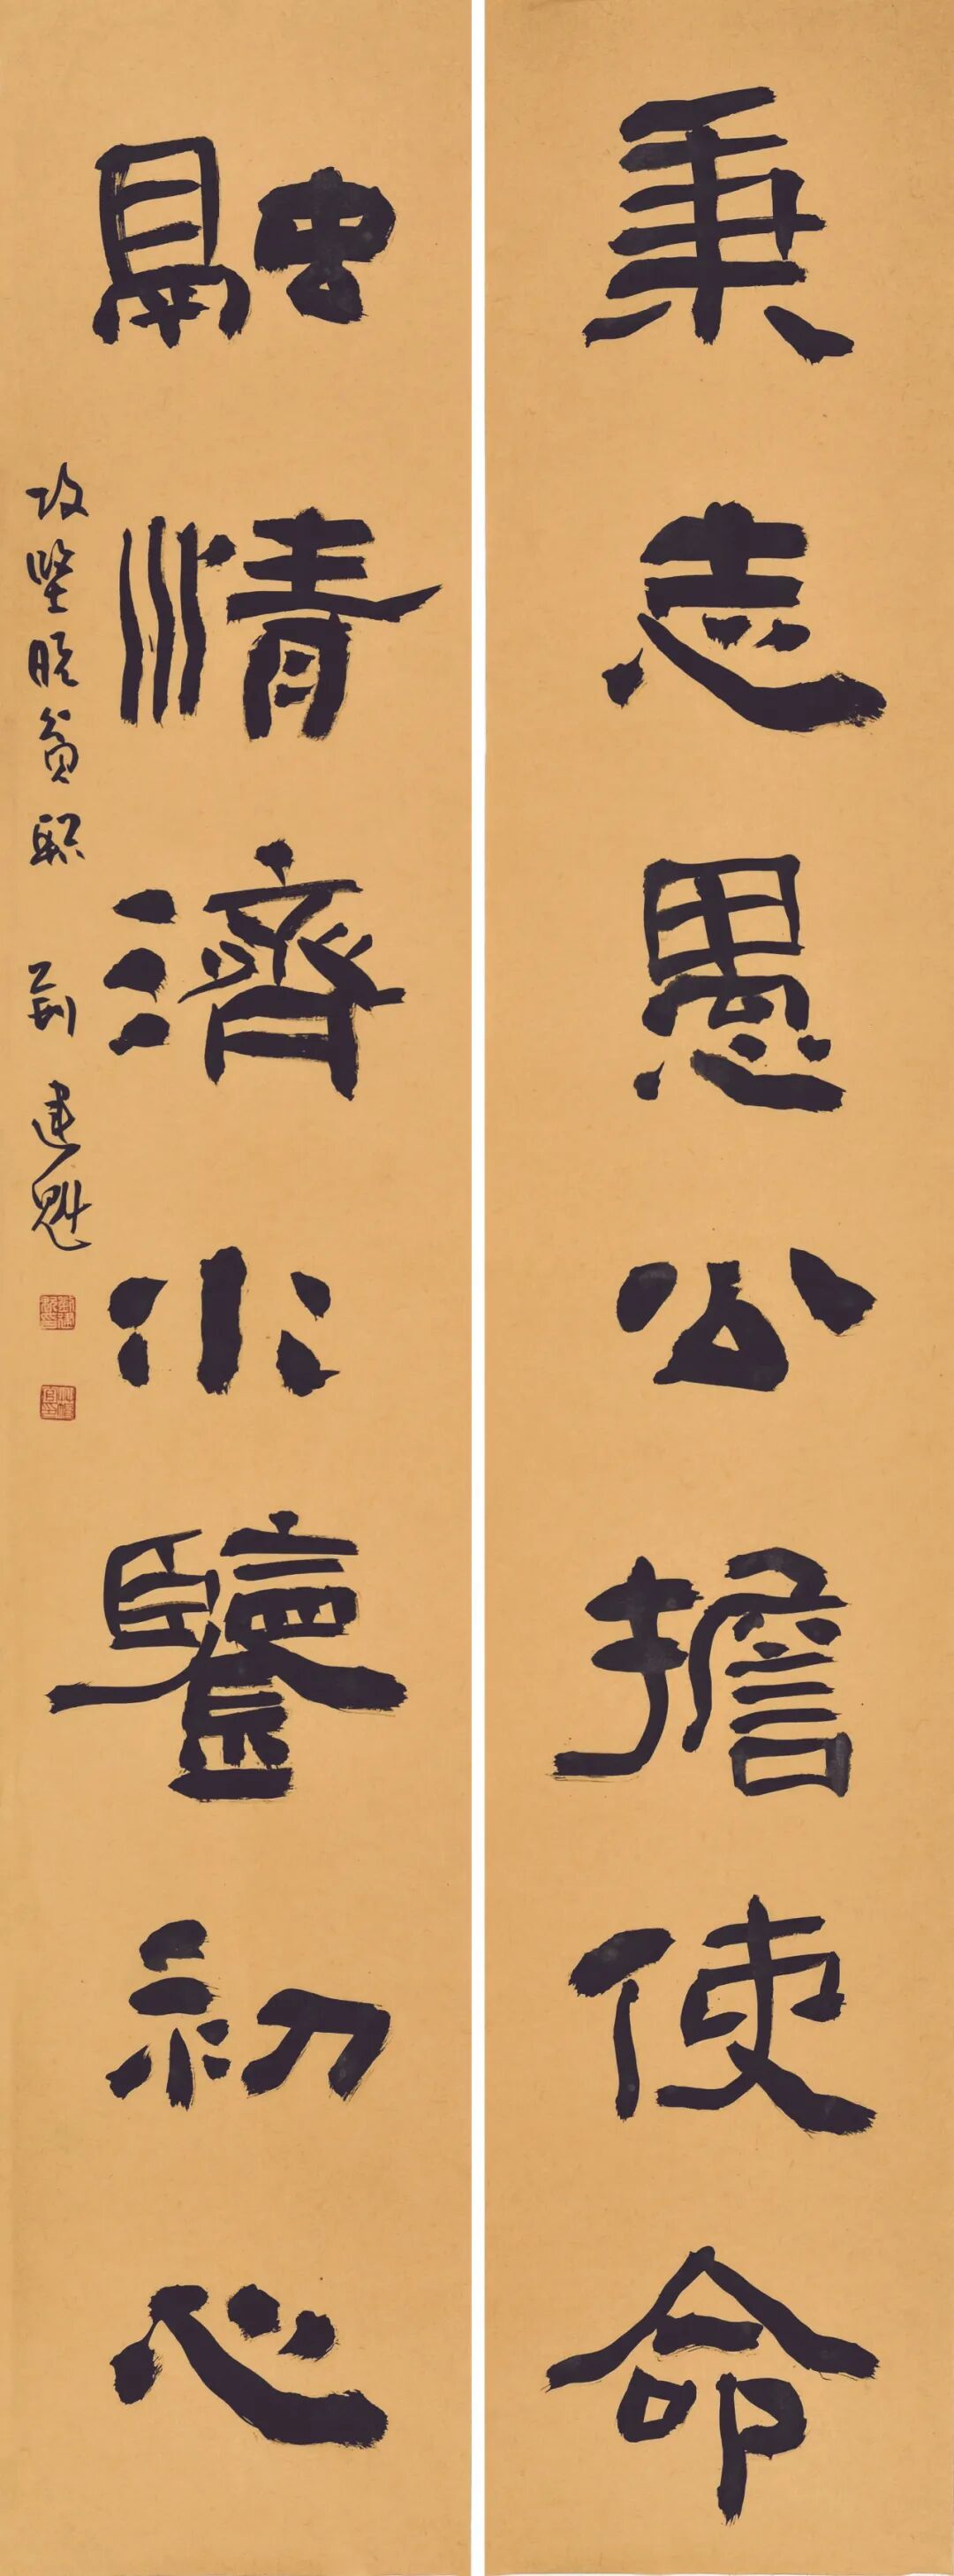 秉志愚公擔使命
融情濟水鑒初心
攻堅脫貧聯 荊建魁